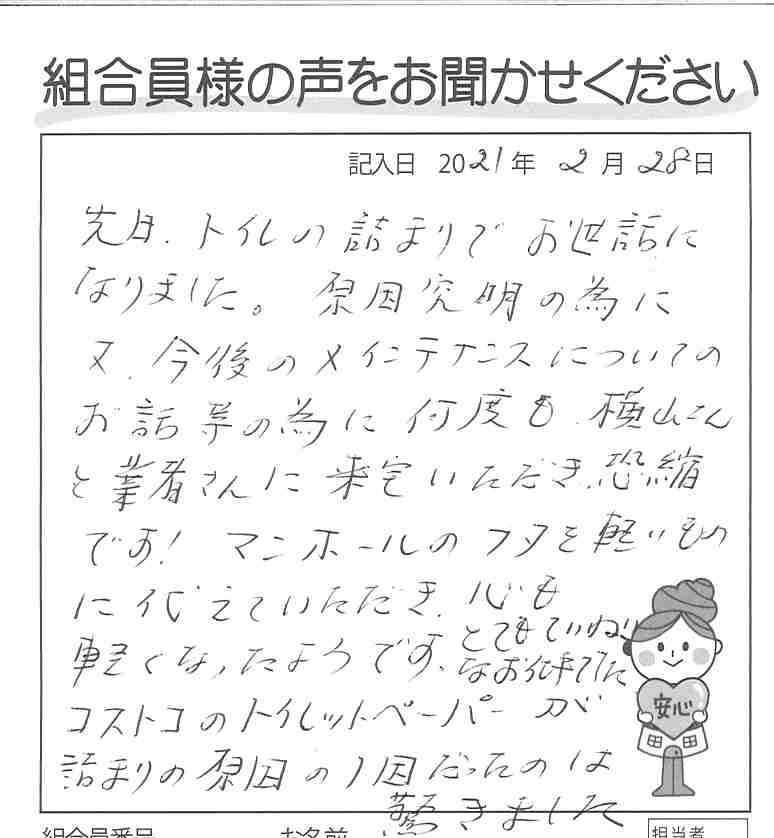 組合員様の声をお聞かせください
記入日 2021年 2月 28日
先日、トイレの詰まりで お世話に
なりました。 原因究明の為に
又、今後のメインテナンスについての
お話等の為に 何度も、横山さん
と業者さんに 来宅いただき、恐縮
です! マンホールのフタを軽いもの
に代えていただき、心も
軽くなったようです、
とてもていねい
なお仕事でした
コストコのトイレットペーパーが
詰まりの原因の1因だったのは
驚きました
安心
組合員番号 お名前 担当者